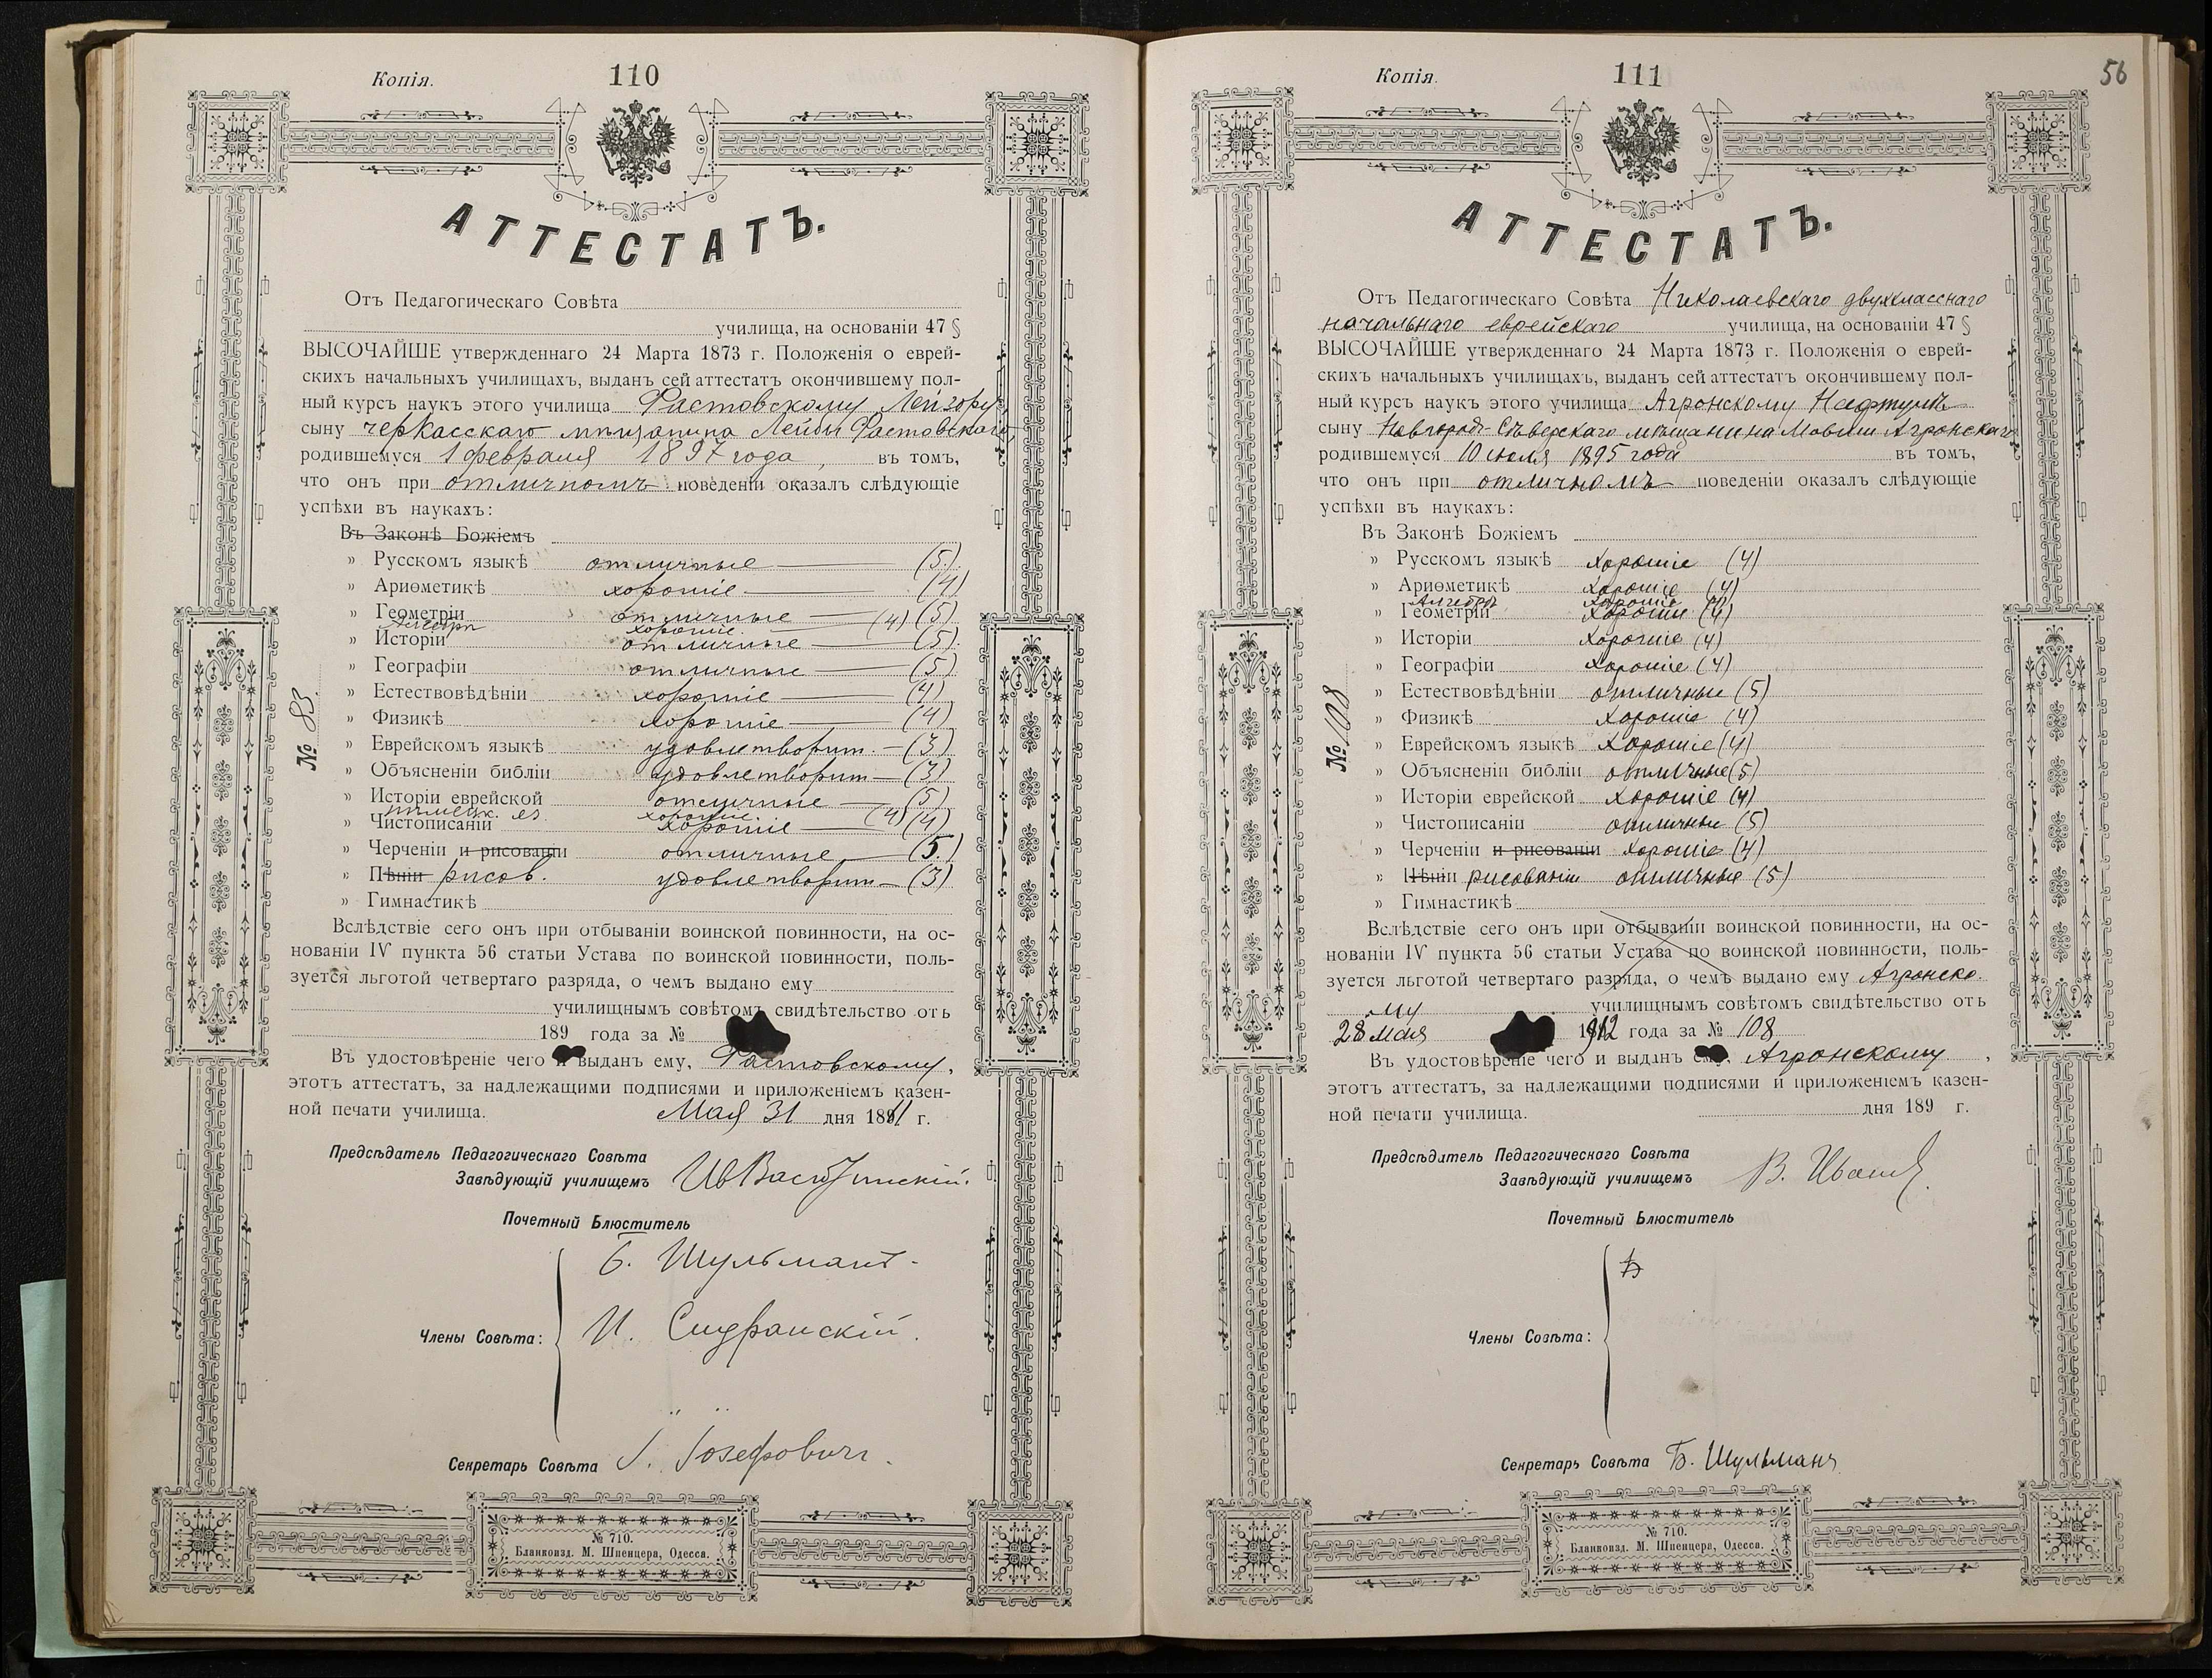 Копія.
110
АТТЕСТАТЪ.
Отъ Педагогическаго Совѣта
училища, на основаніи 47 §
ВЫСОЧАЙШЕ утвержденнаго 24 Марта 1873 г. Положенія о еврей-
скихъ начальныхъ училищахъ, выданъ сей аттестатъ окончившему пол-
ный курсъ наукъ этого училища Фастовскому Лейзору
сыну черкасскаго мѣщанина Лейбы Фастовскаго,
родившемуся 1 февраля 1897 года, въ томъ,
что онъ при отличномъ поведеніи оказалъ слѣдующіе
успѣхи въ наукахъ:
Въ Законѣ Божіемъ
» Русскомъ языкѣ отличные (5)
» Ариѳметикѣ хорошіе (4)
» Геометріи отличные (5)
Алгебрѣ хорошіе (4)
» Исторіи отличные (5)
» Географіи отличные (5)
» Естествовѣдѣніи хорошіе (4)
» Физикѣ хорошіе (4)
» Еврейскомъ языкѣ удовлетворит. (3)
» Объясненіи библіи удовлетворит (3)
» Исторіи еврейской отличные (5)
нѣмецк. яз. хорошіе (4)
» Чистописаніи хорошіе (4)
» Черченіи и рисованіи отличные (5)
» Пѣніи рисов. удовлетворит (3)
» Гимнастикѣ
№ 83.
Вслѣдствіе сего онъ при отбываніи воинской повинности, на ос-
нованіи IV пункта 56 статьи Устава по воинской повинности, поль-
зуется льготой четвертаго разряда, о чемъ выдано ему
училищнымъ совѣтомъ свидѣтельство отъ
189 года за №
Въ удостовѣреніе чего и выданъ ему, Фастовскому,
этотъ аттестатъ, за надлежащими подписями и приложеніемъ казен-
ной печати училища. Мая 31 дня 1911 г.
Предсѣдатель Педагогическаго Совѣта
Завѣдующій училищемъ
Почетный Блюститель
Б. Шульманъ.
Члены Совѣта: И.
Секретарь Совѣта І. Іозефовичъ.
№ 710.
Бланкоизд. М. Шпенцера, Одесса.
Копія.
111
56
АТТЕСТАТЪ.
Отъ Педагогическаго Совѣта Николаевскаго двухкласснаго
начальнаго еврейскаго училища, на основаніи 47 §
ВЫСОЧАЙШЕ утвержденнаго 24 Марта 1873 г. Положенія о еврей-
скихъ начальныхъ училищахъ, выданъ сей аттестатъ окончившему пол-
ный курсъ наукъ этого училища Агронскому Нафтулѣ
сыну Новгородъ-Сѣверскаго мѣщанина Мовши Агронскаго
родившемуся 10 іюля 1895 года въ томъ,
что онъ при отличномъ поведеніи оказалъ слѣдующіе
успѣхи въ наукахъ:
Въ Законѣ Божіемъ
» Русскомъ языкѣ хорошіе (4)
» Ариѳметикѣ хорошіе (4)
Алгебрѣ хорошіе (4)
» Геометріи хорошіе (4)
» Исторіи хорошіе (4)
» Географіи хорошіе (4)
» Естествовѣдѣніи отличные (5)
» Физикѣ хорошіе (4)
» Еврейскомъ языкѣ хорошіе (4)
» Объясненіи библіи отличные (5)
» Исторіи еврейской хорошіе (4)
» Чистописаніи отличные (5)
» Черченіи и рисованіи хорошіе (4)
» Пѣніи рисованіи отличные (5)
» Гимнастикѣ
№ 108
Вслѣдствіе сего онъ при отбываніи воинской повинности, на ос-
нованіи IV пункта 56 статьи Устава по воинской повинности, поль-
зуется льготой четвертаго разряда, о чемъ выдано ему Агронско
му училищнымъ совѣтомъ свидѣтельство отъ
28 мая 1912 года за № 108
Въ удостовѣреніе чего и выданъ ему, Агронскому,
этотъ аттестатъ, за надлежащими подписями и приложеніемъ казен-
ной печати училища. дня 189 г.
Предсѣдатель Педагогическаго Совѣта
Завѣдующій училищемъ В.
Почетный Блюститель
Б
Члены Совѣта:
Секретарь Совѣта Б. Шульманъ
№ 710.
Бланкоизд. М. Шпенцера, Одесса.